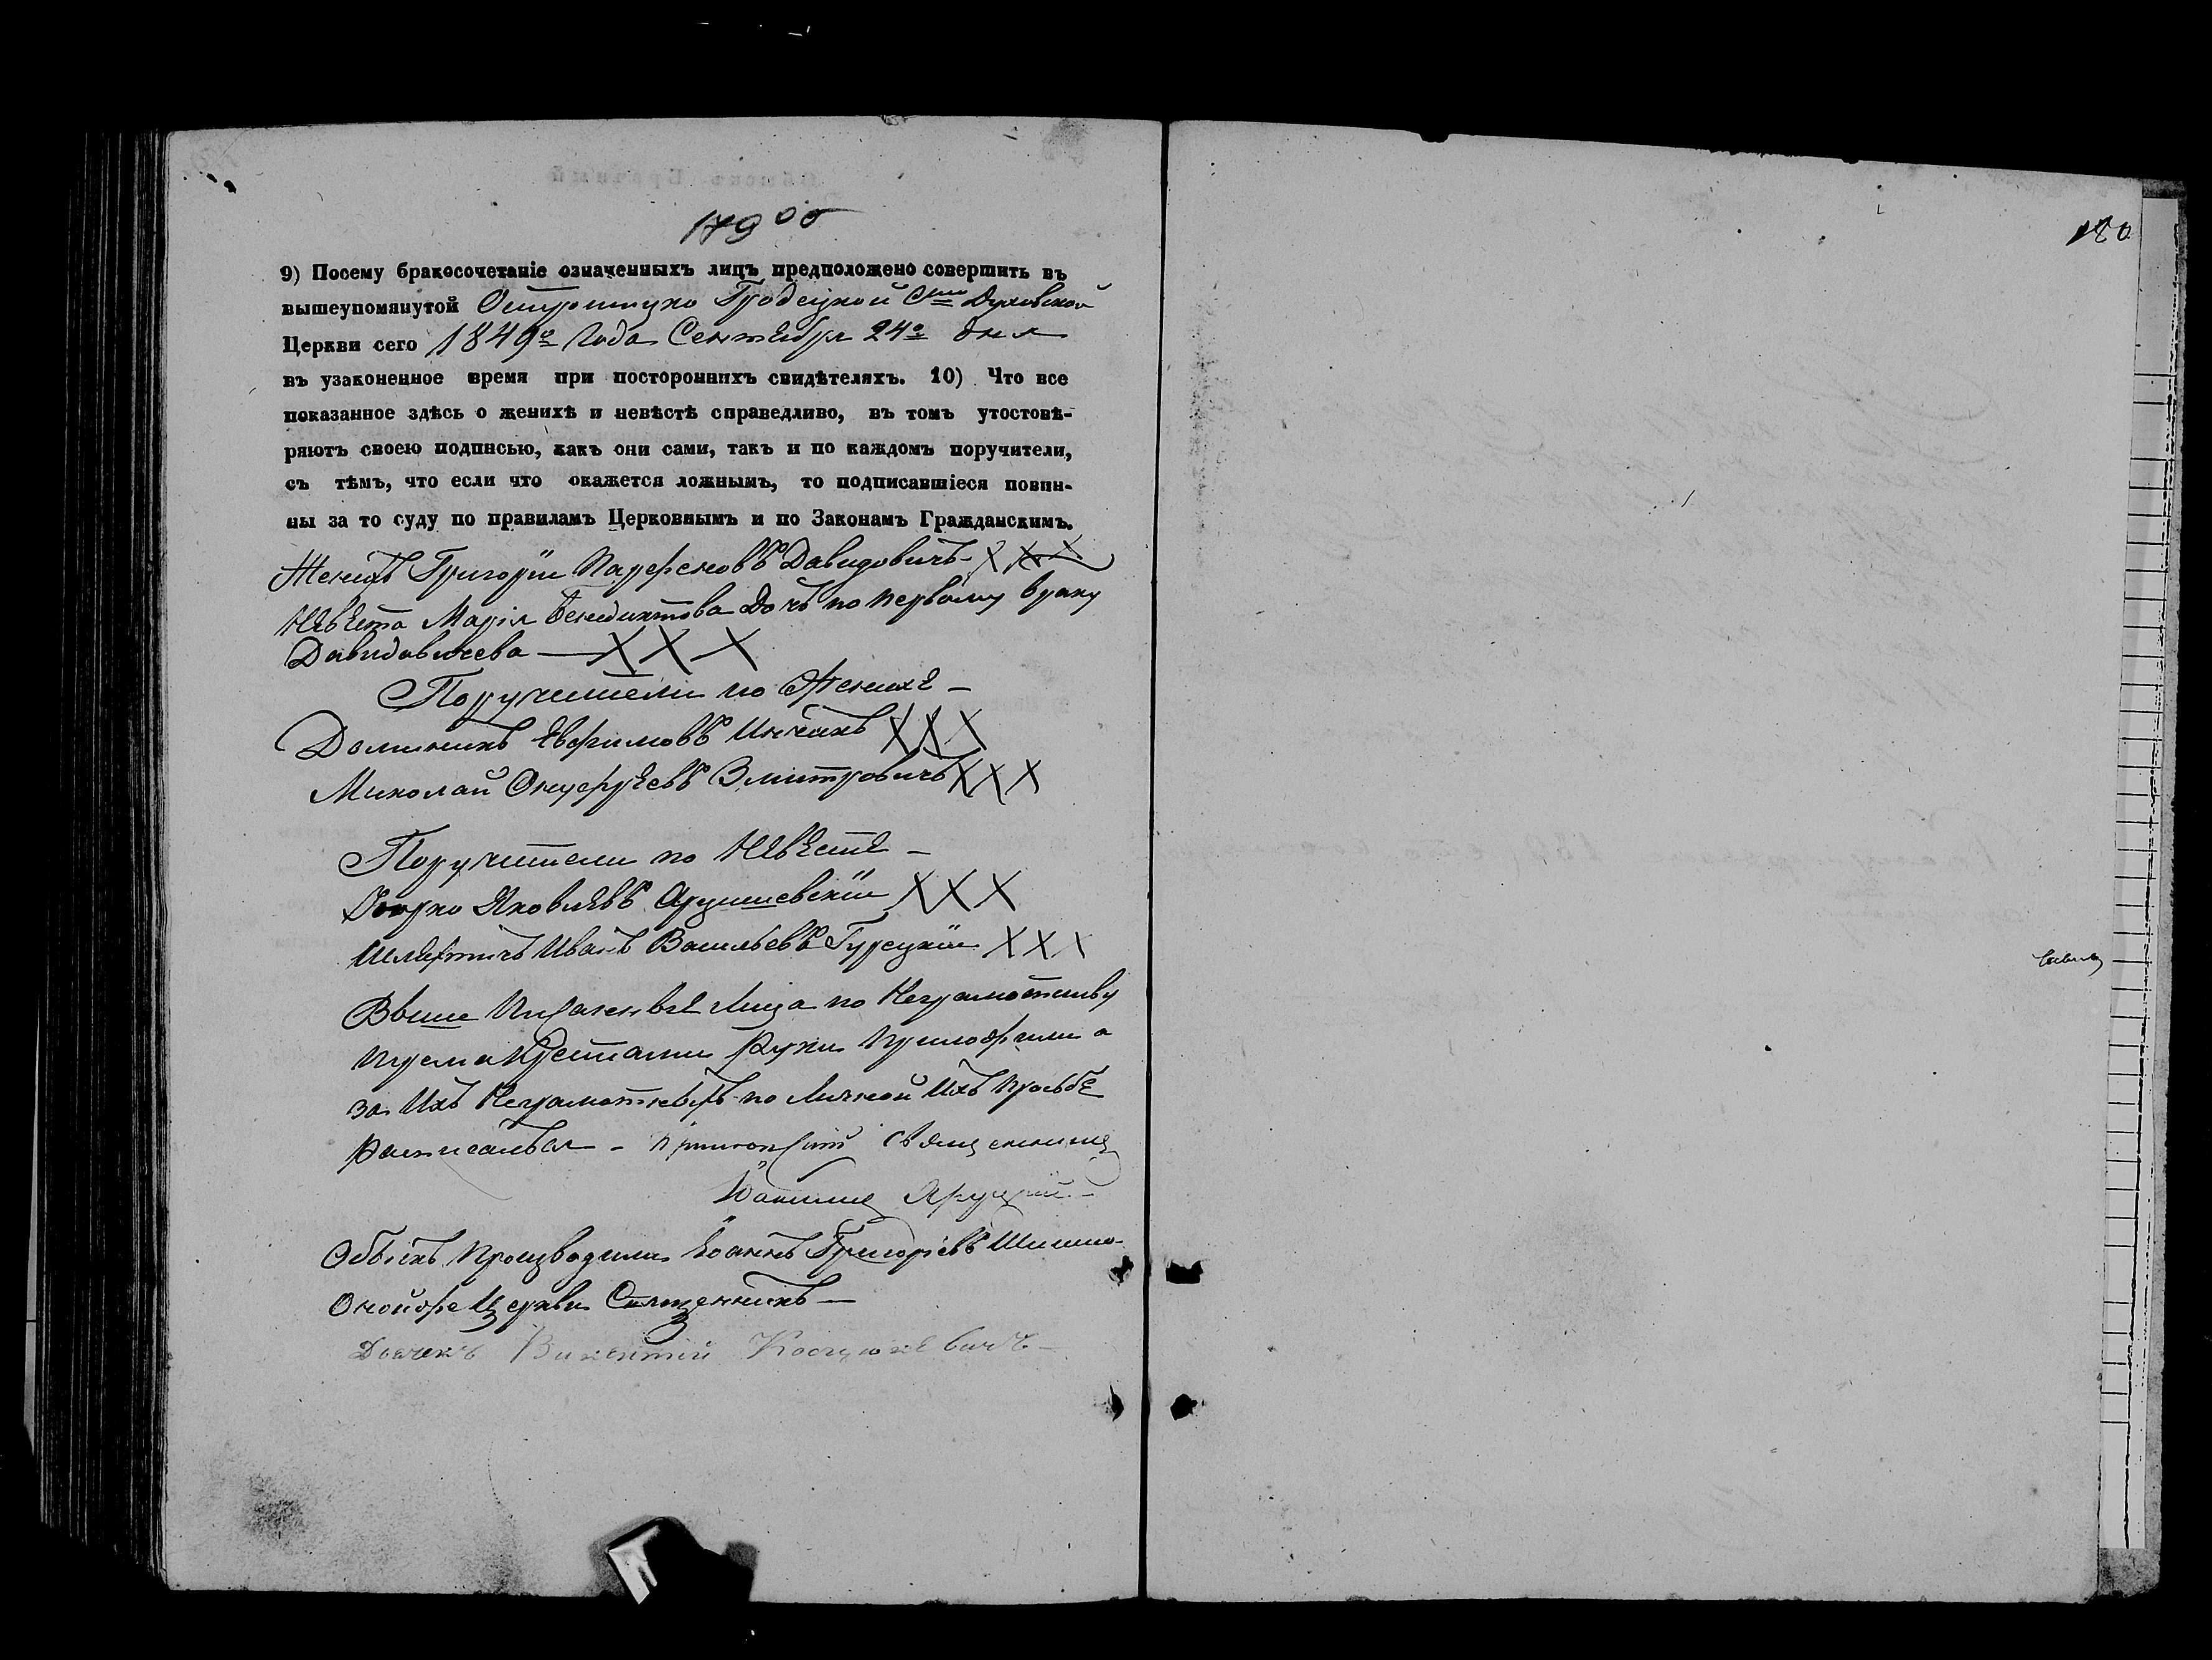 179 об
9) Посему бракосочетаніе означенныхъ лицъ предположено совершить въ
вышеупомянутой Остромицко Гродецкой Свто Духовской
Церкви сего 1849го Года Сентября 24го дня
въ узаконенное время при постороннихъ свидѣтеляхъ. 10) Что все
показанное здѣсь о женихѣ и невѣстѣ справедливо, въ томъ утостовѣ-
ряютъ своею подписью, какъ они сами, такъ и по каждомъ поручители,
съ тѣмъ, что если что окажется ложнымъ, то подписавшіеся повин-
ны за то суду по правиламъ Церковнымъ и по Законамъ Гражданскимъ.
Женихъ Григорiи Парфеновъ Давидовичъ X X X
Невѣста Марiя Бенедиктова Дочъ по первому браку
Давидовичева — X X X
Поручители по Женихѣ –
Доминикъ Евфимовъ X X X
Миколай Змитровичъ X X X
Поручители по Невѣстѣ –
Яковлевъ X X X
Шляхтичъ Иванъ Васильевъ Турецкiи X X X
Выше Писанныѣ Лица по Неграмотству
трема Крестами Руки Приложили а
за Ихъ Неграмотныхъ по Личной Ихъ Просьбѣ
Расписалъся –
Обыскъ Производили Iоаннъ Григорiевъ
Оной же Церкви Священникъ —
Дьячекъ Викентiй –
180